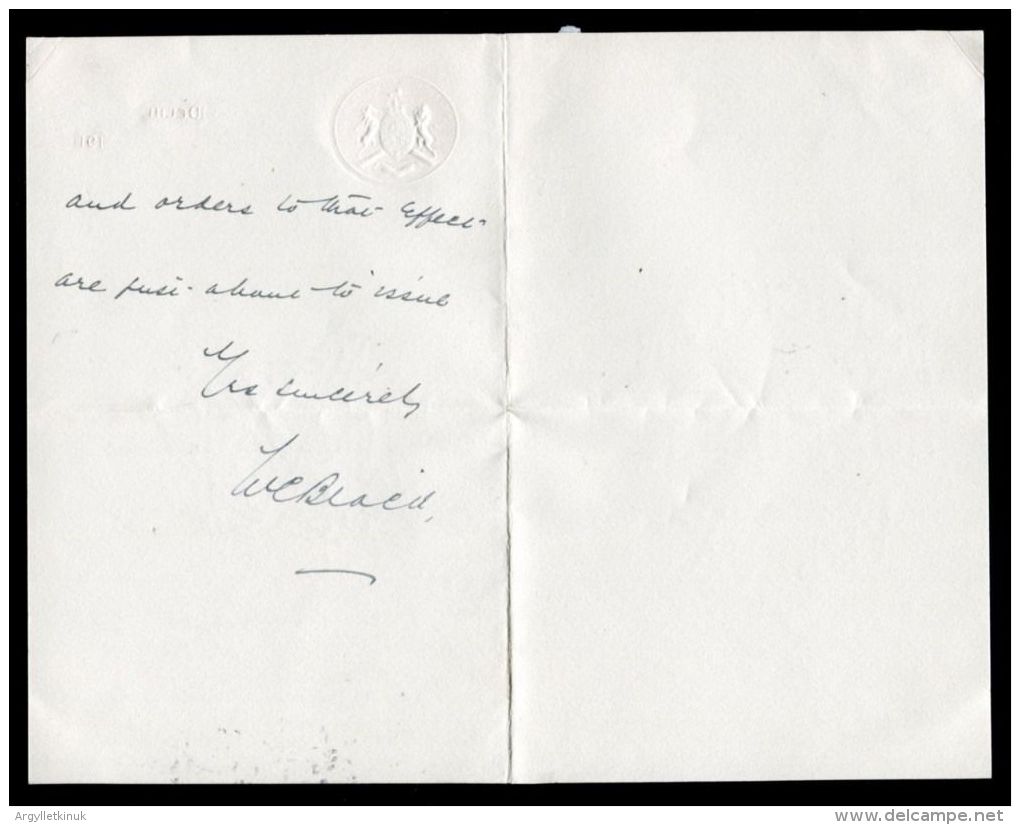 and orders to that Effect
are just about to issue
Yrs sincerely
Argylletkinuk
delcampe.net